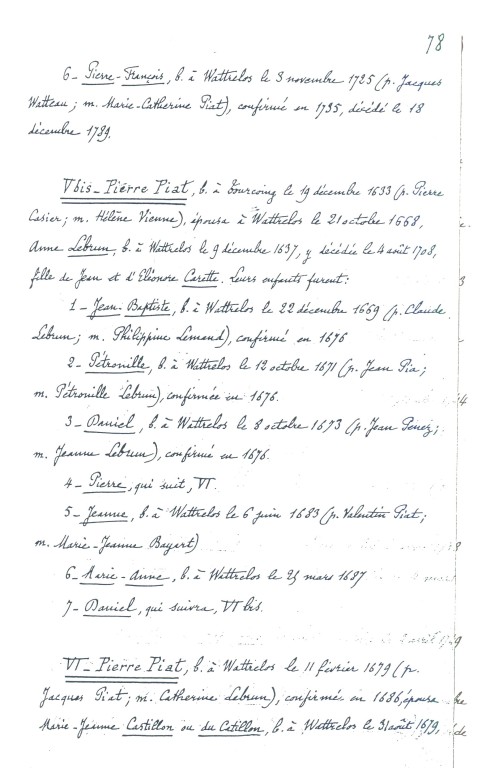 78
6 - Pierre-François, b. à Wattrelos le 3 novembre 1725 (p. Jacques
Watteau ; m. Marie-Catherine Piat), confirmé en 1735, décédé le 18
décembre 1789.
Vbis - Pierre Piat, b. à Tourcoing le 19 décembre 1633 (p. Pierre
Casier ; m. Hélène Vienne), épousa à Wattrelos le 21 octobre 1668,
Anne Lebrun, b. à Wattrelos le 9 décembre 1637, y décédée le 4 août 1708,
fille de Jean et d'Eléonore Carette. Leurs enfants furent :
1 - Jean-Baptiste, b. à Wattrelos le 22 décembre 1669 (p. Claude
Lebrun ; m. Philippine Lemand), confirmé en 1676
2 - Pétronille, b. à Wattrelos le 12 octobre 1671 (p. Jean Pia ;
m. Pétronille Lebrun), confirmée en 1676.
3 - Daniel, b. à Wattrelos le 8 octobre 1673 (p. Jean Penez ;
m. Jeanne Lebrun), confirmé en 1676.
4 - Pierre, qui suit, VI.
5 - Jeanne, b. à Wattrelos le 6 juin 1683 (p. Valentin Piat ;
m. Marie-Jeanne Bayart)
6 - Marie-Anne, b. à Wattrelos le 25 mars 1687
7 - Daniel, qui suivra, VI bis.
VI - Pierre Piat, b. à Wattrelos le 11 février 1679 (p.
Jacques Piat ; m. Catherine Lebrun), confirmé en 1686, épousa
Marie-Jeanne Castillon ou du Catillon, b. à Wattrelos le 31 août 1679,